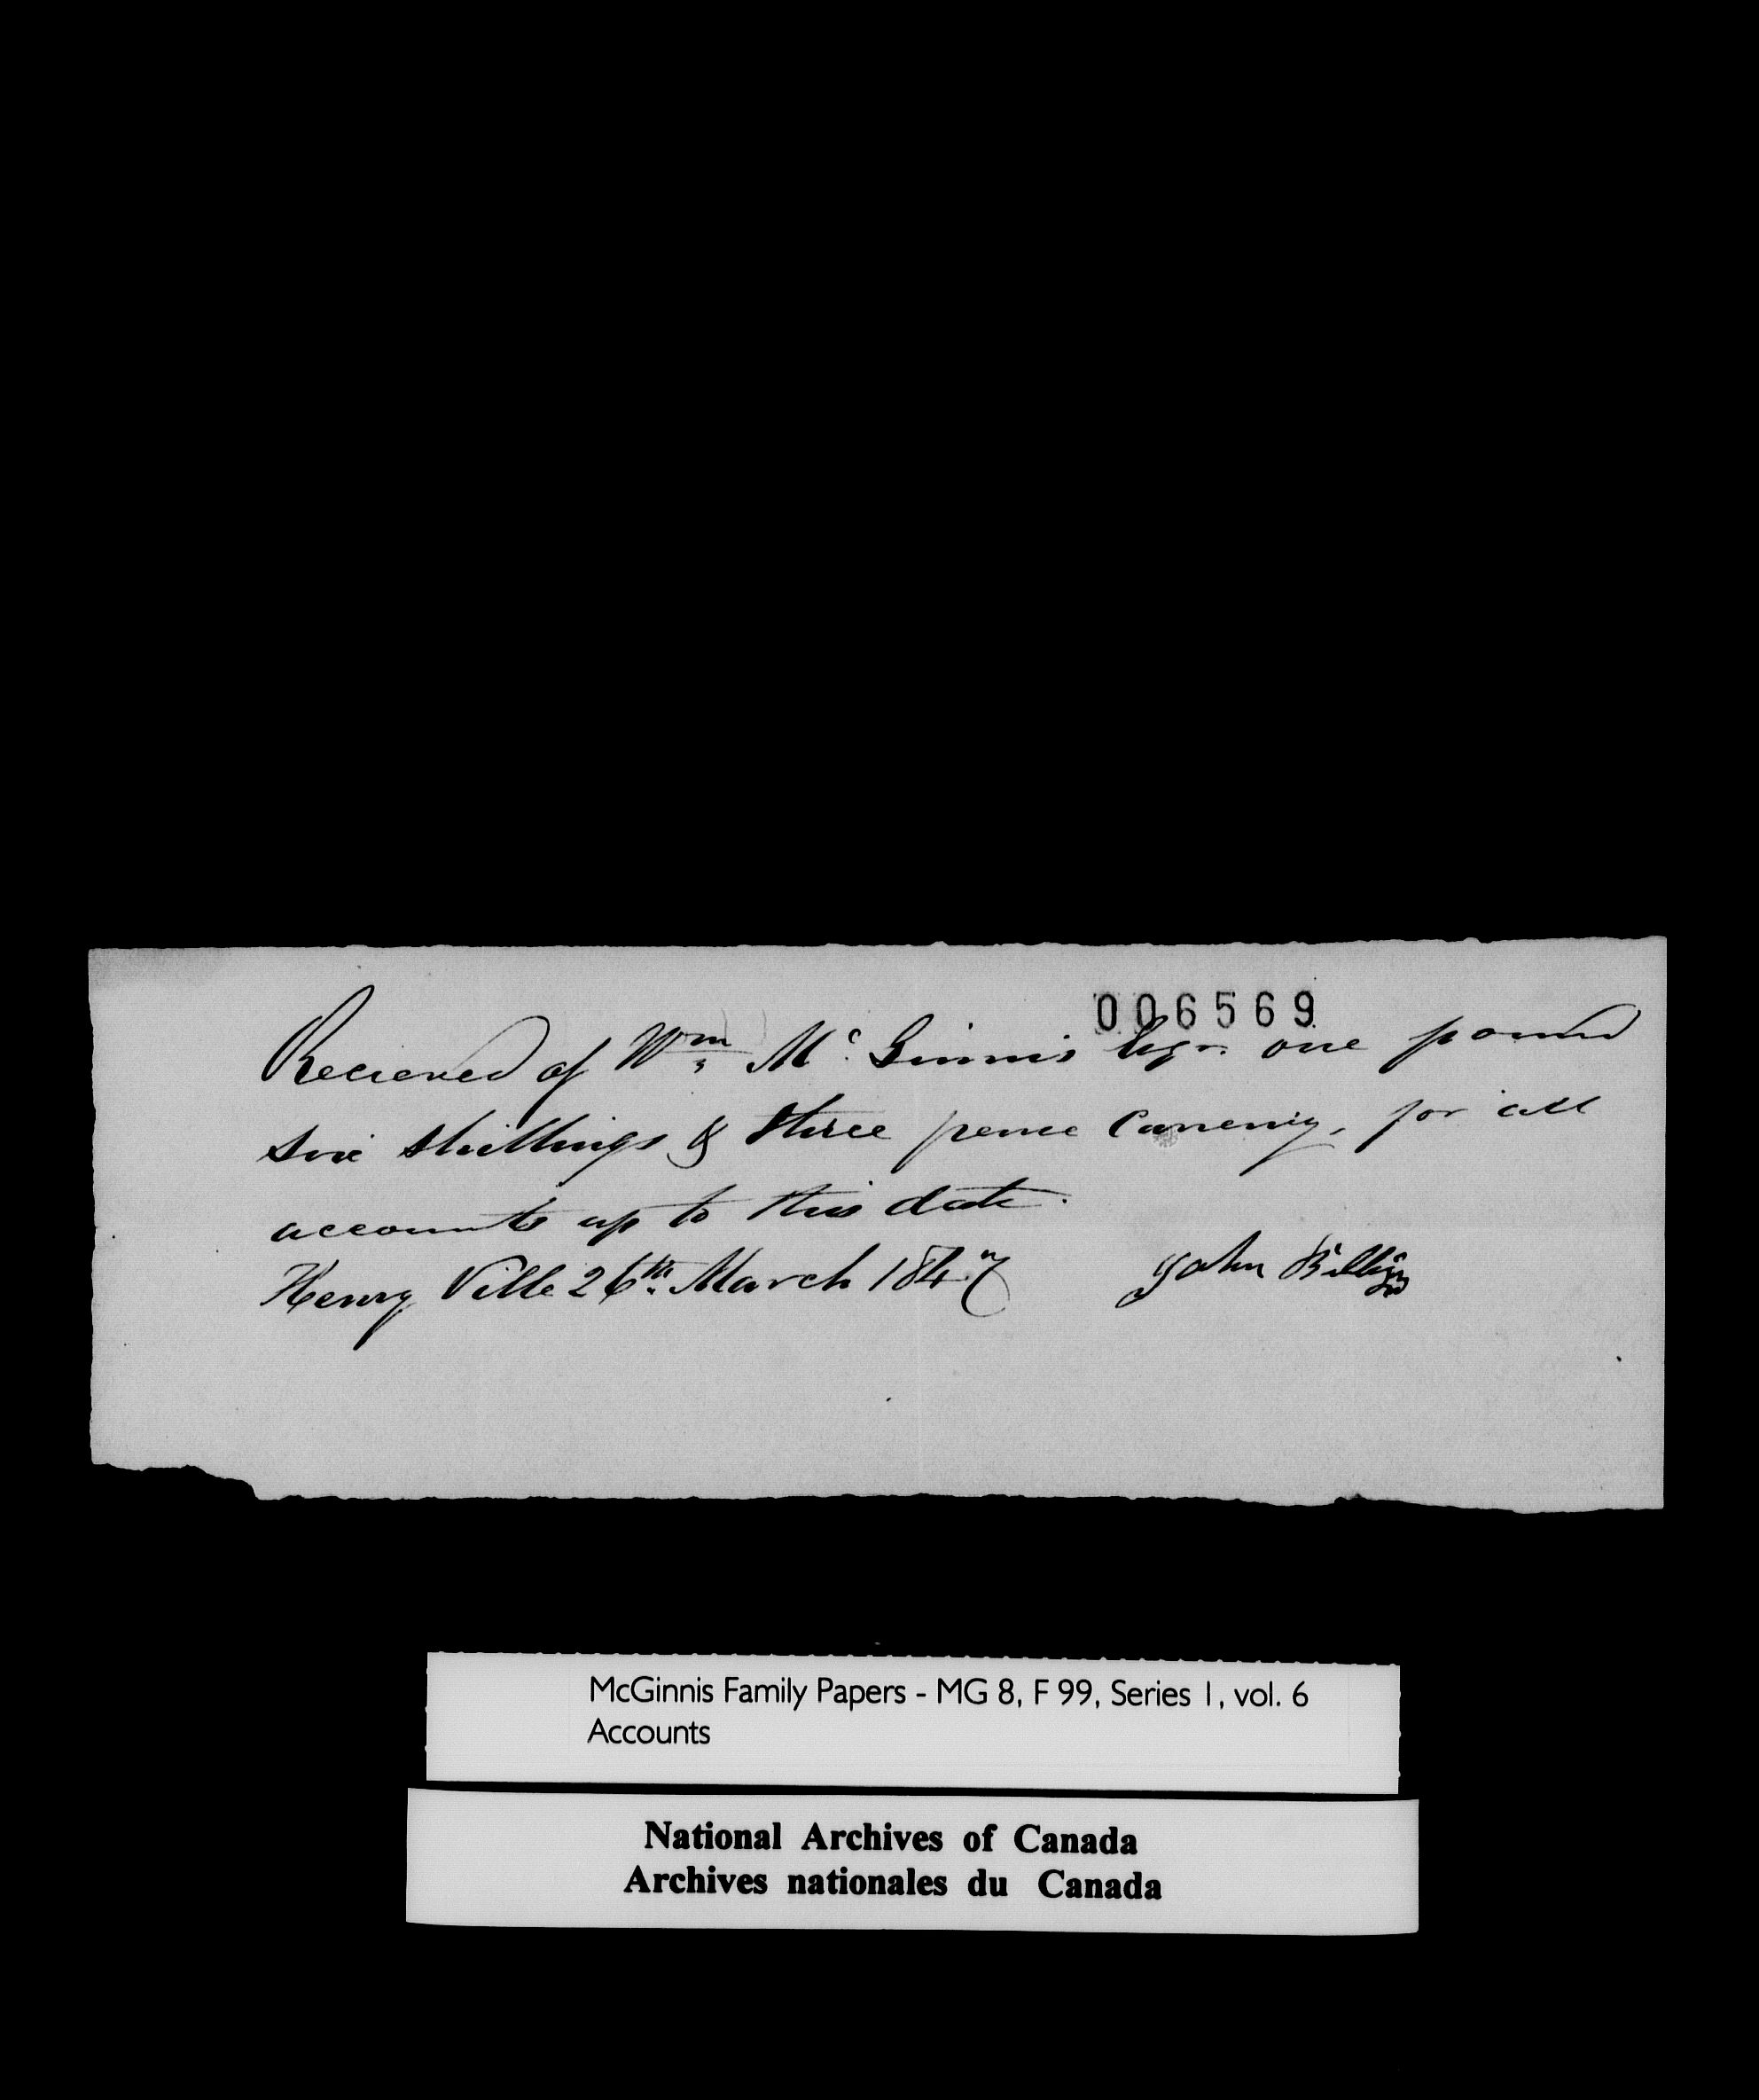 006569
Recieved of Wm McGinnis Esqr. one pound
six shillings & three pence Currency, for all
accounts up to this date.
Henry Ville 26th March 1847 John
McGinnis Family Papers - MG 8, F 99, Series 1, vol. 6
Accounts
National Archives of Canada
Archives nationales du Canada